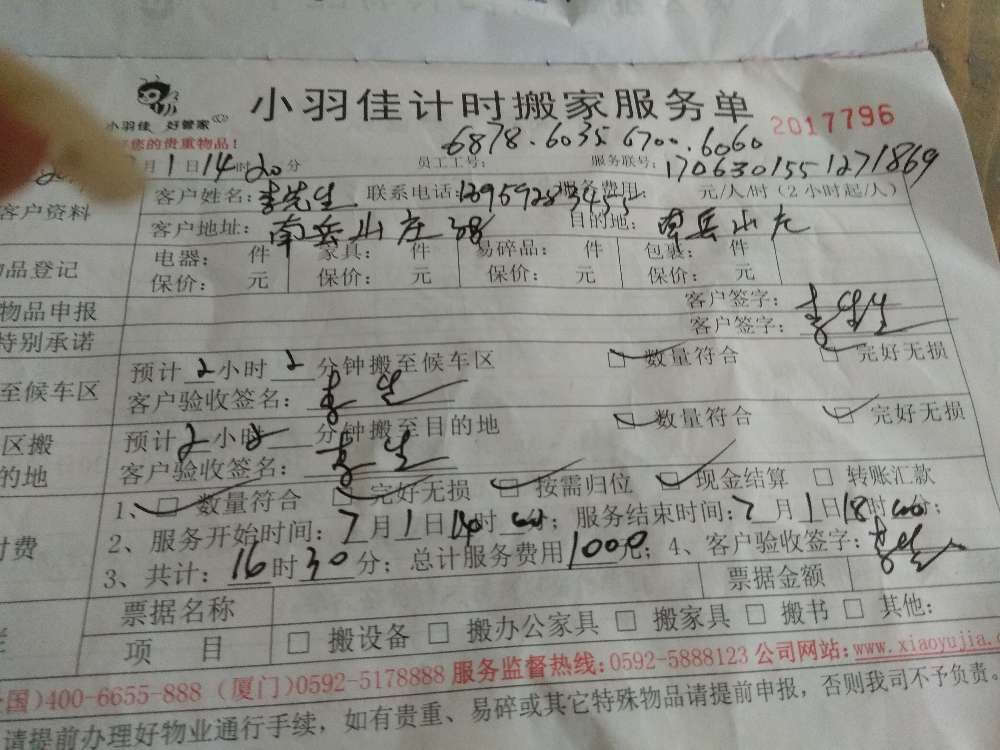 小羽佳计时搬家服务单
小羽佳 好管家
2017796
6878.6035 6700.6060
您的贵重物品！
月1日14时20分 员工工号： 服务联号：1706301551271869
客户资料
客户姓名：李先生 联系电话： 服务费用： 元/人/时（2小时起/人）
客户地址：南岳山庄38 目的地：南岳山庄
品登记
电器： 件 家具： 件 易碎品： 件 包裹： 件
保价： 元 保价： 元 保价： 元 保价： 元
物品申报 客户签字：
特别承诺 客户签字：
至候车区
预计2小时2分钟搬至候车区 数量符合 完好无损
客户验收签名：
区搬
的地
预计2小时 分钟搬至目的地 数量符合 完好无损
客户验收签名：
付费
1、 数量符合 完好无损 按需归位 现金结算 转账汇款
2、服务开始时间：7月1日 时 分；服务结束时间：7月1日18时 分；
3、共计：16时30分；总计服务费用1000元；4、客户验收签字：
票据名称 票据金额
项 目 搬设备 搬办公家具 搬家具 搬书 其他：
国)400-6655-888 (厦门)0592-5178888 服务监督热线：0592-5888123 公司网站：www.xiaoyujia.
请提前办理好物业通行手续，如有贵重、易碎或其它特殊物品请提前申报，否则我司不予负责。